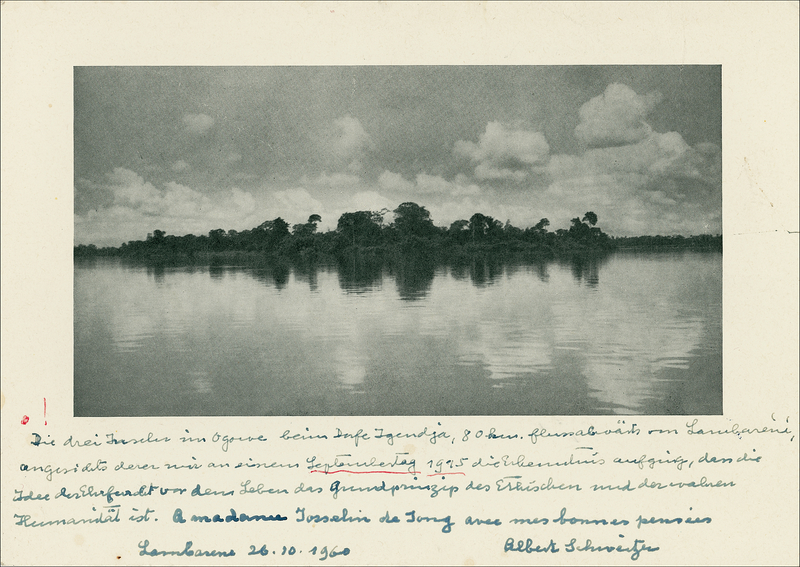 Die drei Inseln im Ogowe beim Dorfe Igendja, 80 km. flussabwärts von Lambarene,
angesichts derer mir an einem Septembertag 1915 die Erkenntnis aufging, dass die
Idee der Ehrfurcht vor dem Leben das Grundprinzip des Ethischen und der wahren
Humanität ist. A madame Josselin de Jong avec mes bonnes pensées
Lambarene 26.10.1960 Albert Schweitzer